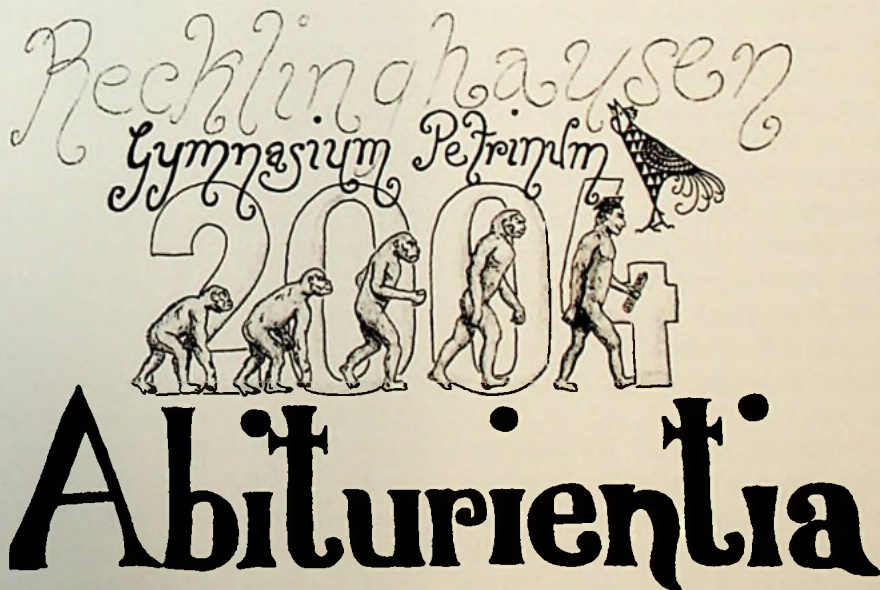 Recklinghausen
Gymnasium Petrinum
2004
Abiturientia